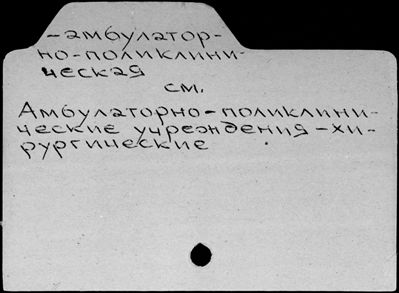 -амбулатор-
но-поликлини-
ческая
см.
Амбулаторно-поликлини-
ческие учреждения-хи-
рургические